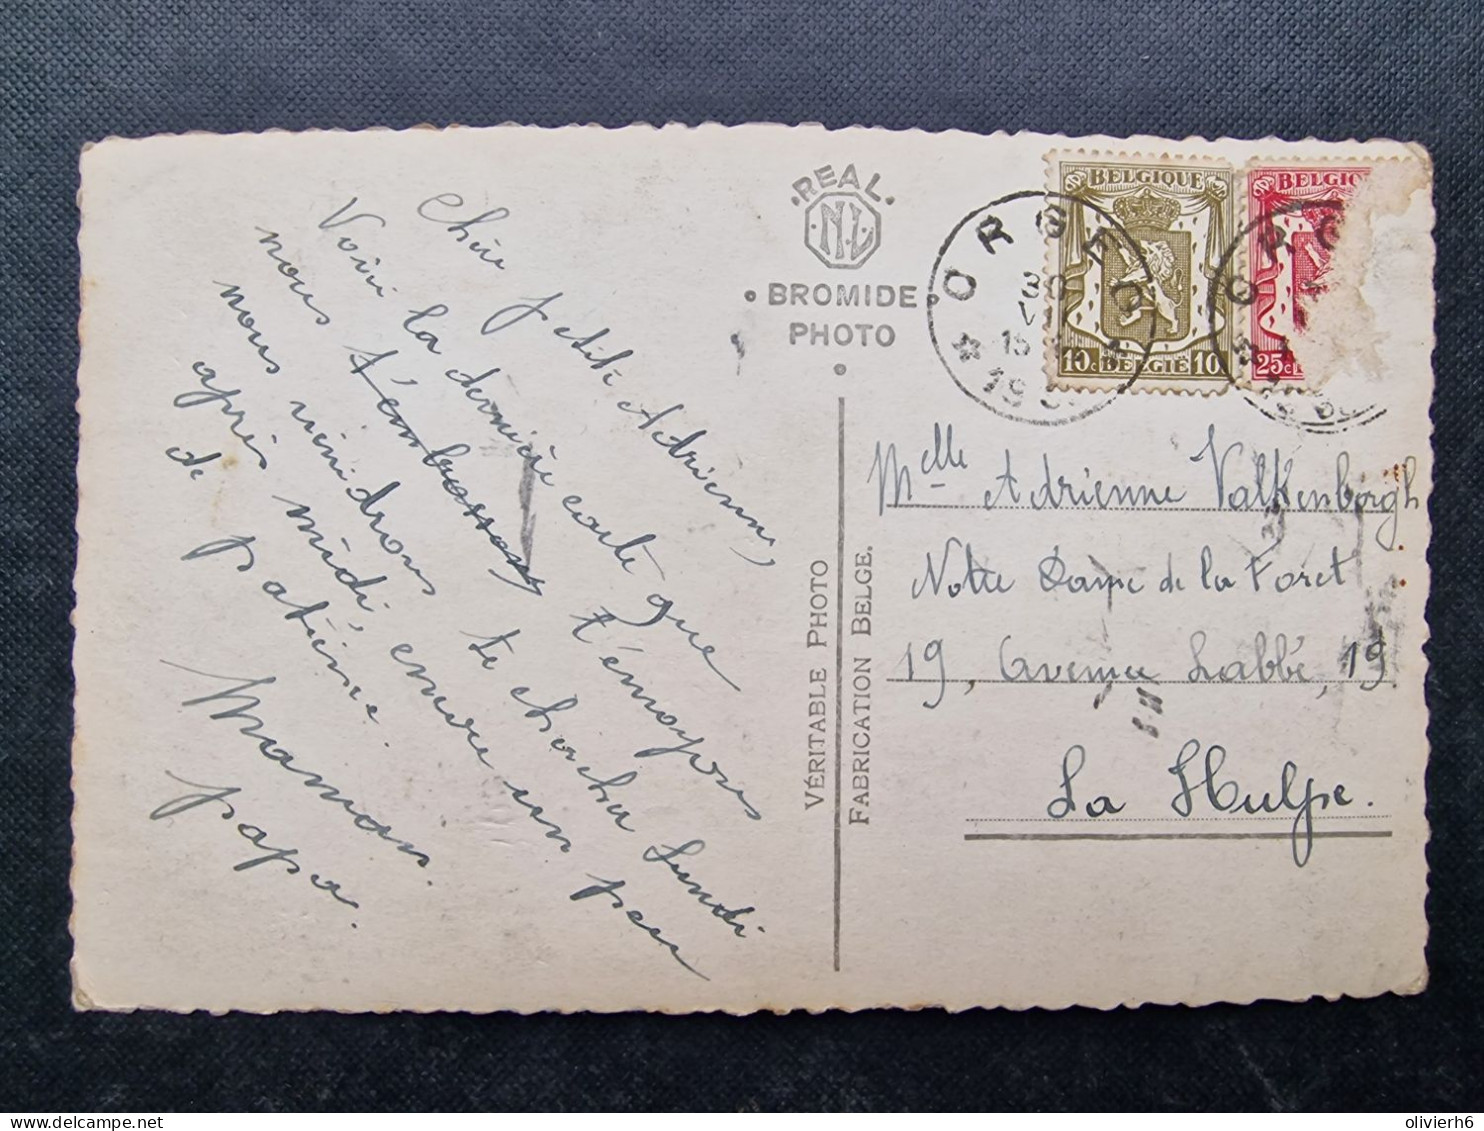 Chère petite Adrienne,
Voici la dernière carte que
nous t'embrassons t'envoyons
nous viendrons te chercher Lundi
après midi, encore un peu
de patience.
Maman
papa.
·REAL·
·N.L.·
BROMIDE
PHOTO
VÉRITABLE PHOTO
FABRICATION BELGE.
ORGEO
30
15
19
BELGIQUE
10c BELGIË 10
BELGIQ
25c
ORG
Melle Adrienne Valkenborgh
Notre Dame de la Foret
19, Avenue Labbé, 19
La Hulpe.
olivierh6